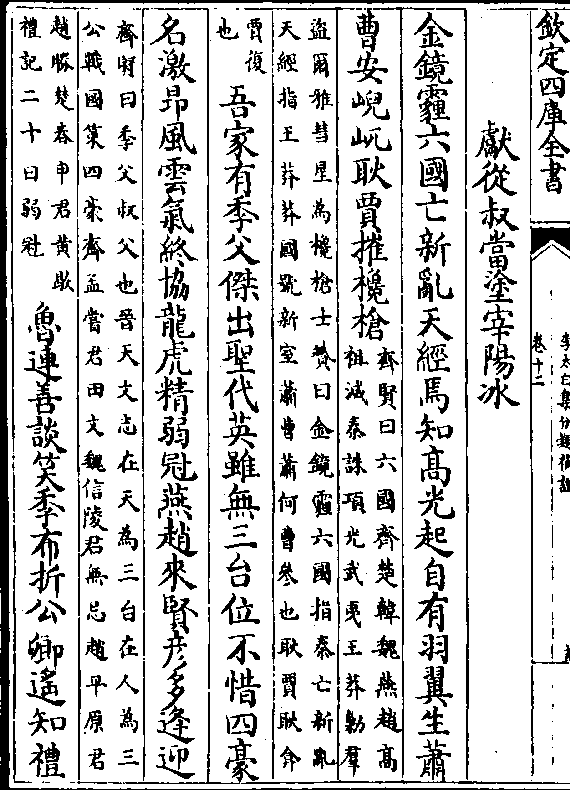 欽定四庫全書
李太白集分類補註
卷十二
獻從叔當塗宰陽冰
金鏡霾六國亡新亂天經焉知髙光起自有羽翼生蕭
曹安峴屼耿賈摧欃槍
齊賢曰六國齊楚韓魏燕趙髙
祖滅秦誅項光武曵王莽勦羣
盜爾雅彗星為欃槍士贇曰金鏡霾六國指秦亡新亂
天經指王莽莽國號新室蕭曹蕭何曹參也耿賈耿弇
賈復
也
吾家有季父傑出聖代英雖無三台位不惜四豪
名激昻風雲氣終協龍虎精弱冠燕趙來賢彦多逢迎
齊賢曰季父叔父也晉天文志在天為三台在人為三
公戰國策四豪齊孟嘗君田文魏信陵君無忌趙平原君
趙勝楚春申君黄歇
禮記二十曰弱冠
魯連善談笑季布折公卿遙知禮